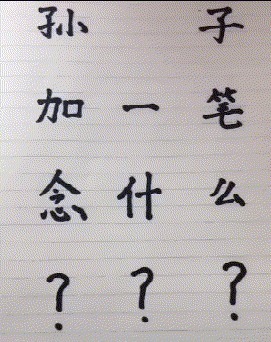 孙 子
加 一 笔
念 什 么
? ? ?